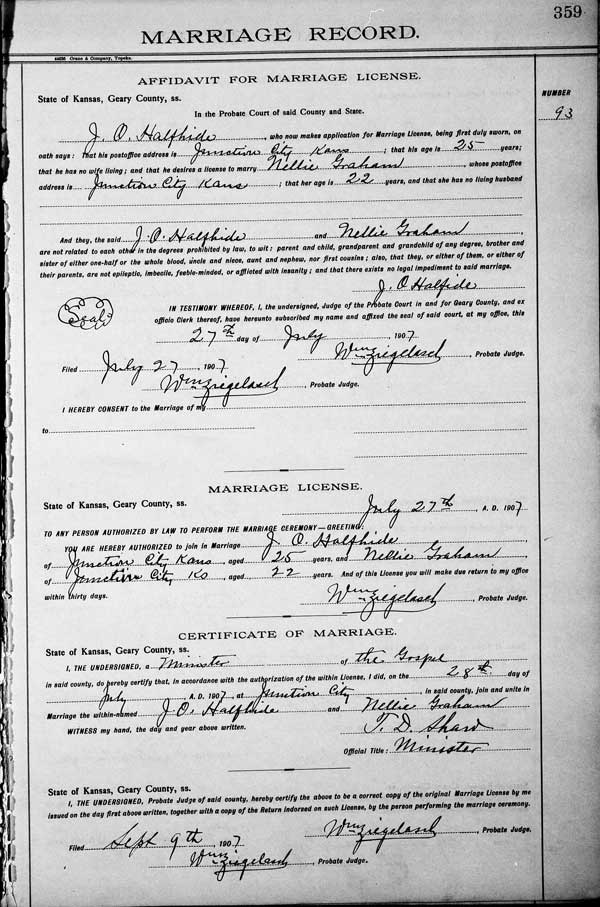 359
MARRIAGE RECORD.
44236 Crane & Company, Topeka.
AFFIDAVIT FOR MARRIAGE LICENSE.
NUMBER
93
State of Kansas, Geary County, ss.
In the Probate Court of said County and State.
J. O. Halfhide, who now makes application for Marriage License, being first duly sworn, on
oath says: that his postoffice address is Junction City Kans; that his age is 25 years;
that he has no wife living; and that he desires a license to marry Nellie Graham, whose postoffice
address is Junction City Kans; that her age is 22 years, and that she has no living husband
And they, the said J. O. Halfhide and Nellie Graham,
are not related to each other in the degrees prohibited by law, to wit: parent and child, grandparent and grandchild of any degree, brother and
sister of either one-half or the whole blood, uncle and niece, aunt and nephew, nor first cousins; also, that they, or either of them, or either of
their parents, are not epileptic, imbecile, feeble-minded, or afflicted with insanity; and that there exists no legal impediment to said marriage.
J. O Halfide
Seal
IN TESTIMONY WHEREOF, I, the undersigned, Judge of the Probate Court in and for Geary County, and ex
officio Clerk thereof, have hereunto subscribed my name and affixed the seal of said court, at my office, this
27th day of July, 1907
Wm Ziegelasch, Probate Judge.
Filed July 27, 1907
Wm Ziegelasch, Probate Judge.
I HEREBY CONSENT to the Marriage of my
to
MARRIAGE LICENSE.
State of Kansas, Geary County, ss.
July 27th, A. D. 1907
TO ANY PERSON AUTHORIZED BY LAW TO PERFORM THE MARRIAGE CEREMONY—GREETING:
YOU ARE HEREBY AUTHORIZED to join in Marriage J. O. Halfhide,
of Junction City Kans, aged 25 years, and Nellie Graham,
of Junction City Ks, aged 22 years. And of this License you will make due return to my office
within thirty days.
Wm Ziegelasch, Probate Judge.
CERTIFICATE OF MARRIAGE.
State of Kansas, Geary County, ss.
I, THE UNDERSIGNED, a Minister of the Gospel
in said county, do hereby certify that, in accordance with the authorization of the within License, I did, on the 28th day of
July, A. D. 1907, at Junction City, in said county, join and unite in
Marriage the within-named J. O. Halfhide and Nellie Graham
WITNESS my hand, the day and year above written.
T. D. Shaw
Official Title: Minister
State of Kansas, Geary County, ss.
I, THE UNDERSIGNED, Probate Judge of said county, hereby certify the above to be a correct copy of the original Marriage License by me
issued on the day first above written, together with a copy of the Return indorsed on such License, by the person performing the marriage ceremony.
Wm Ziegelasch, Probate Judge.
Filed Sept 9th, 1907
Wm Ziegelasch, Probate Judge.